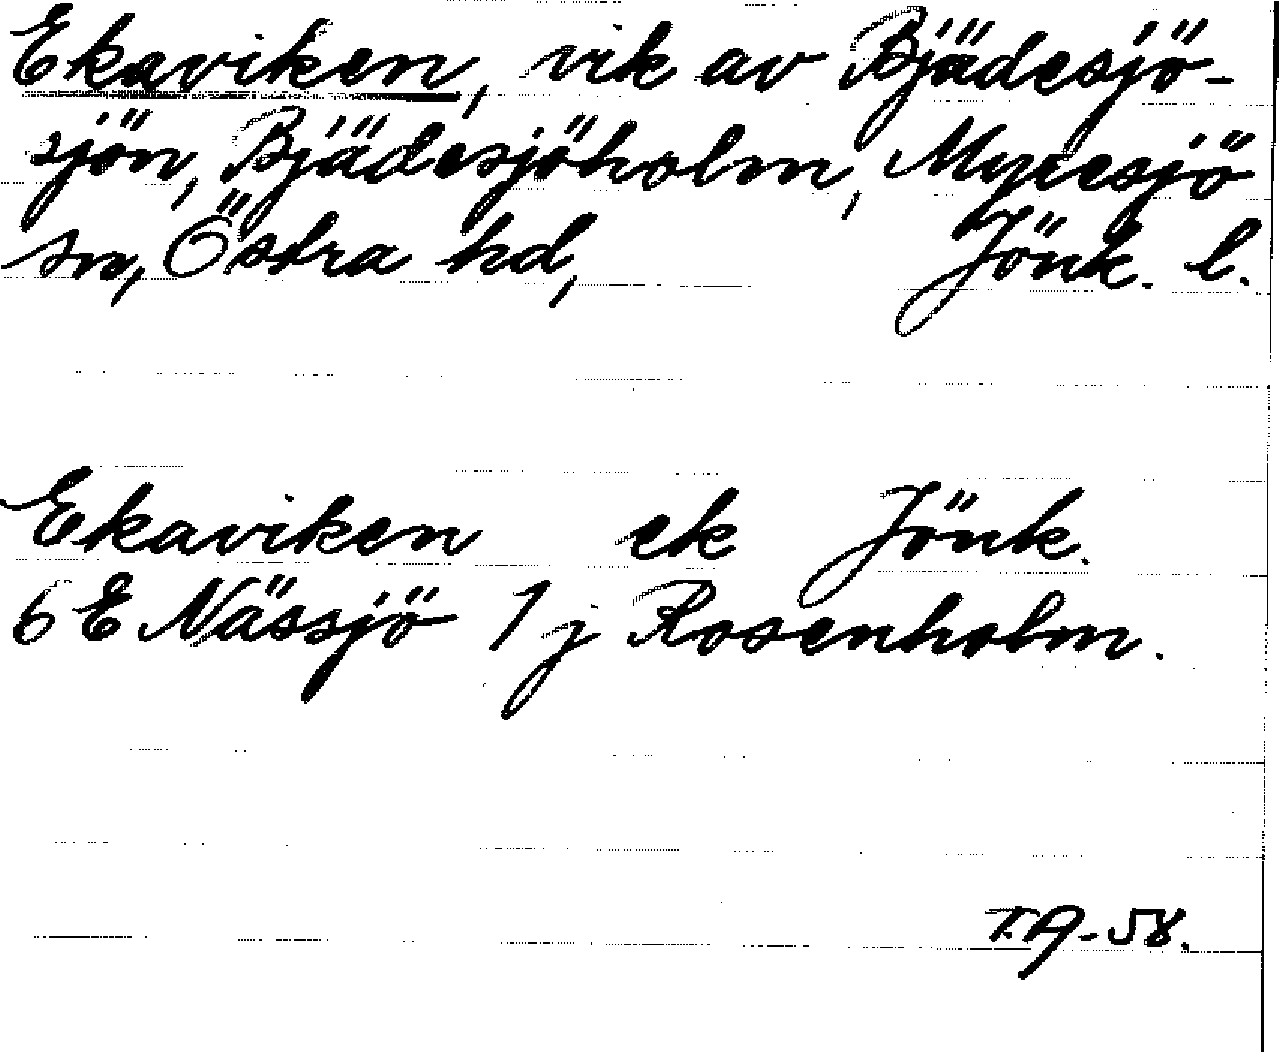 Ekaviken, vik av Bjädesjö-
sjön, Bjädesjöholm, Myresjö
sn, Östra hd, Jönk. l.
Ekaviken ek Jönk.
6 E Nässjö 1 j Rosenholm.
T.A-58.